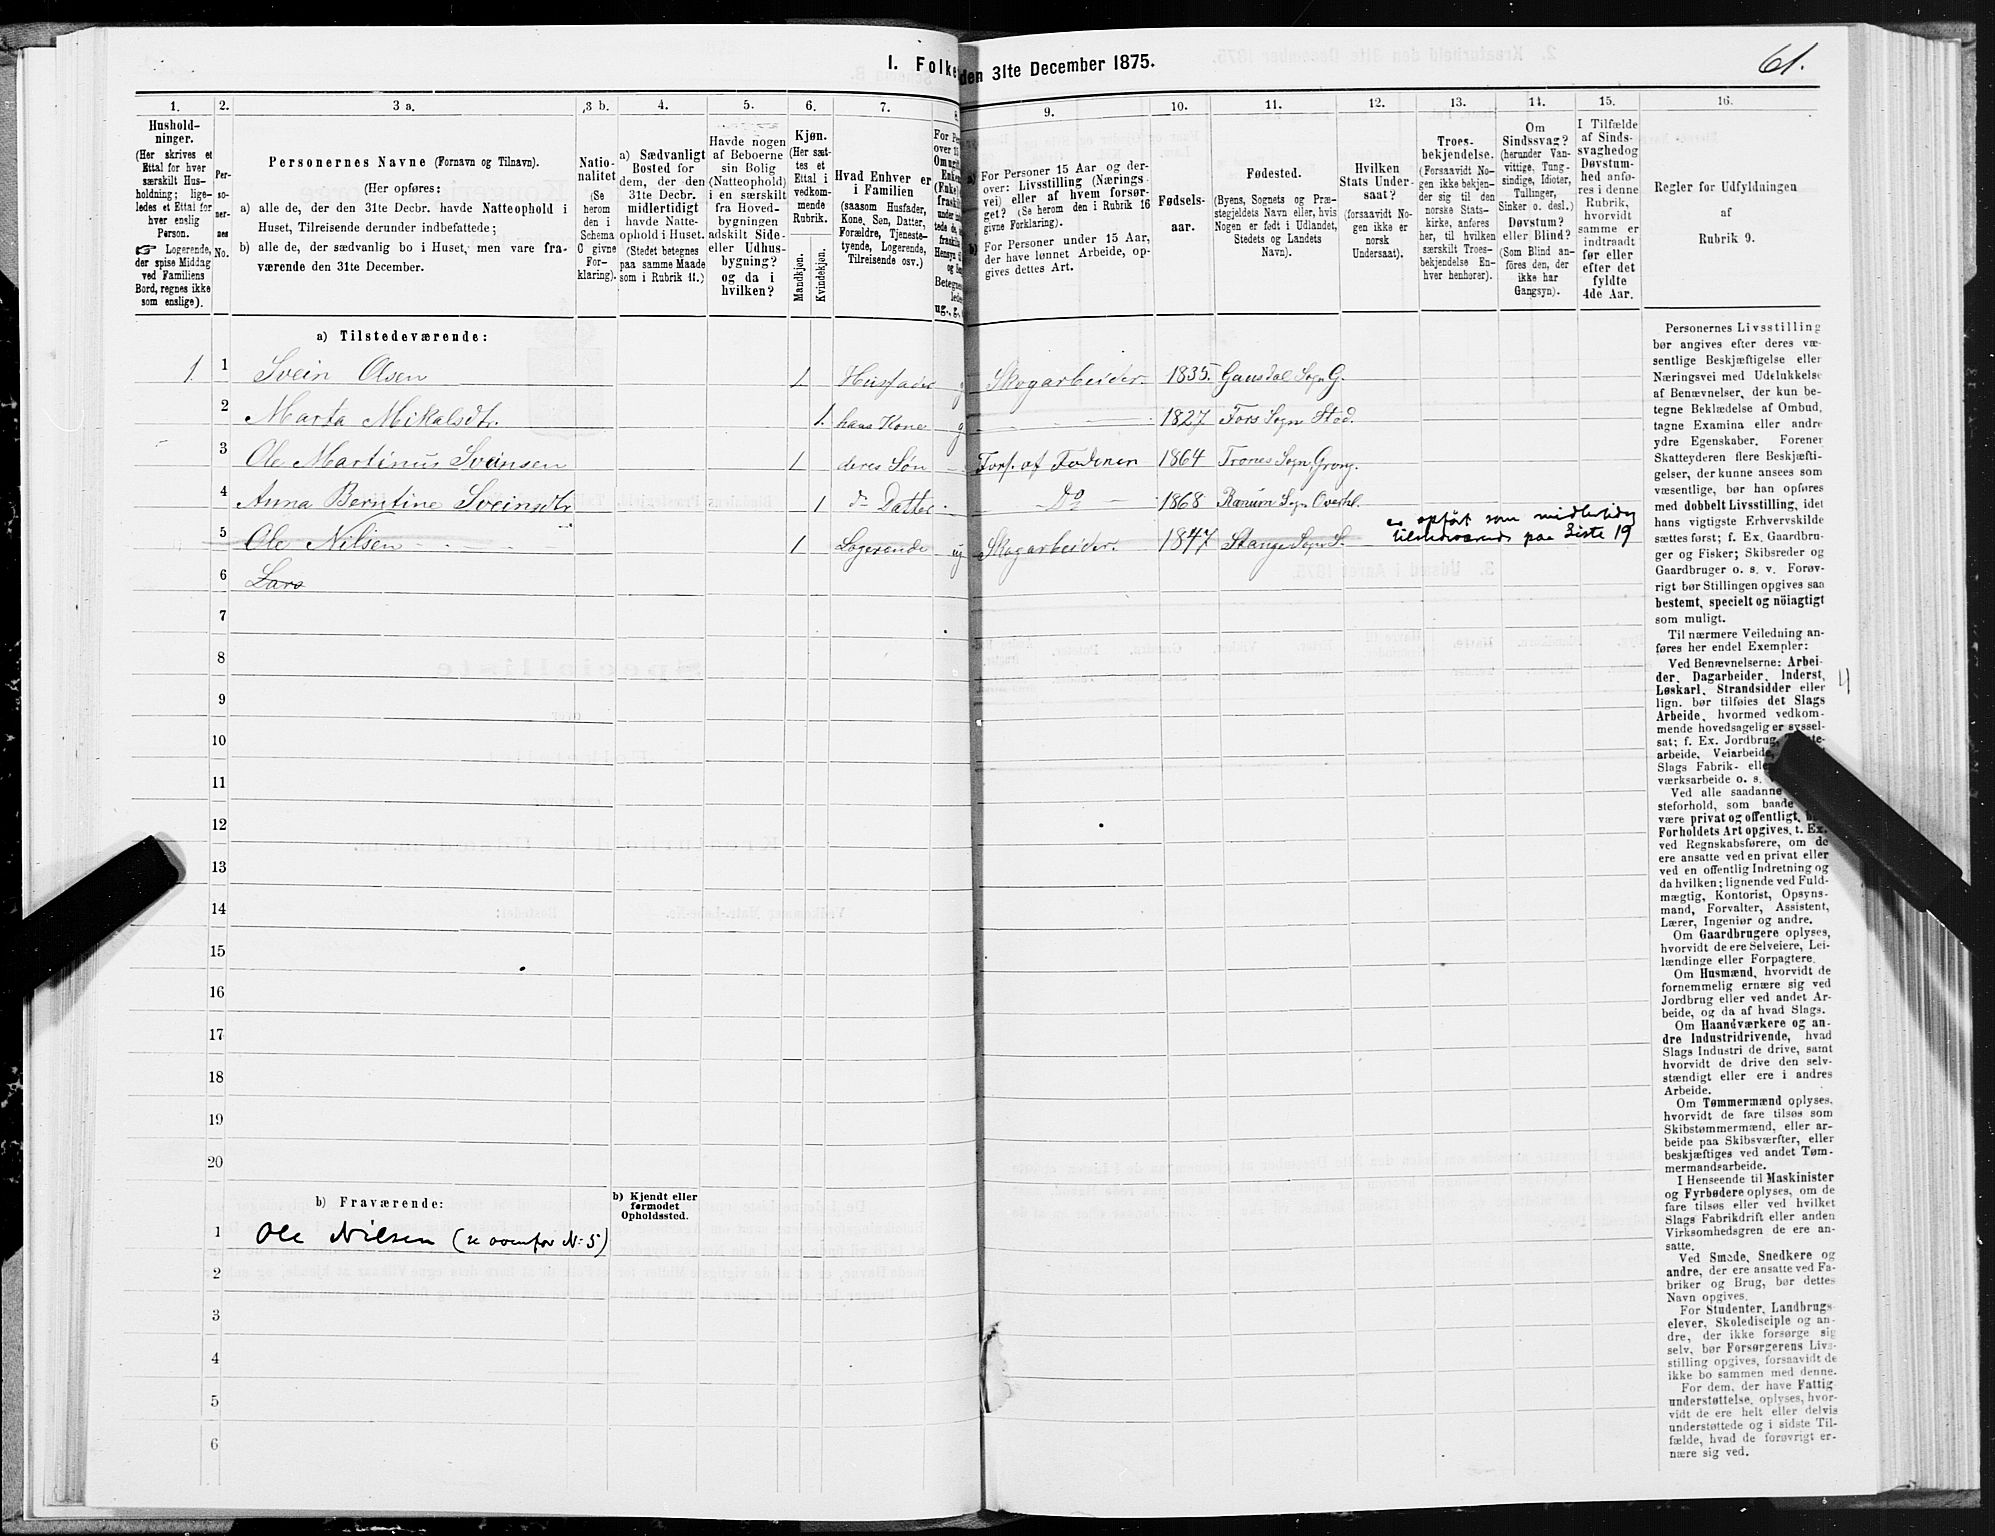 61.
I. Folke den 31te December 1875.
1. 2. 3 a. 3 b. 4. 5. 6. 7. 8. 9. 10. 11. 12. 13. 14. 15. 16.
Hushold-
ninger.
(Her skrives et
Ettal for hver
særskilt Hus-
holdning; lige-
ledes et Ettal for
hver enslig
Person.
☞ Logerende,
der spise Middag
ved Familiens
Bord, regnes ikke
som enslige).
Per-
so-
ner-
nes
No.
Personernes Navne (Fornavn og Tilnavn).
(Her opføres:
a) alle de, der den 31te Decbr. havde Natteophold i
Huset, Tilreisende derunder indbefattede;
b) alle de, der sædvanlig bo i Huset, men vare fra-
værende den 31te December.
Natio-
nalitet
(Se
herom
den i
Schema
C givne
For-
klaring).
a) Sædvanligt
Bosted for
dem, der den
31te Decbr.
midlertidigt
havde Natte-
ophold i Huset.
(Stedet betegnes
paa samme Maade
som i Rubrik 11.)
Havde nogen
af Beboerne
sin Bolig
(Natteophold)
i en særskilt
fra Hoved-
bygningen
adskilt Side-
eller Udhus-
bygning?
og da i
hvilken?
Kjøn.
(Her sæt-
tes et
Ettal i
vedkom-
mende
Rubrik.
Mandkjøn.
Kvindekjøn.
Hvad Enhver er
i Familien
(saasom Husfader,
Kone, Søn, Datter,
Forældre, Tjeneste-
tyende, Logerende,
Tilreisende osv.)
a) For Personer 15 Aar og der-
over: Livsstilling (Nærings-
vei) eller af hvem forsør-
get? (Se herom den i Rubrik 16
givne Forklaring).
b) For Personer under 15 Aar,
der have lønnet Arbeide, op-
gives dettes Art.
Fødsels-
aar.
Fødested.
(Byens, Sognets og Præ-
stegjeldets Navn eller, hvis
Nogen er født i Udlandet,
Stedets og Landets
Navn).
Hvilken
Stats Under-
saat?
(forsaavidt No-
gen ikke er
norsk
Undersaat).
Troes-
bekjendelse.
(Forsaavidt No-
gen ikke bekjen-
der sig til den
norske Stats-
kirke, anføres
her, til hvilken
særskilt Troes-
bekjendelse En-
hver henhører).
Om
Sindssvag?
(herunder Van-
vittige, Tung-
sindige, Idioter,
Tullinger,
Sinker o. desl.)
Døvstum?
eller Blind?
(Som Blind an-
føres den, der
ikke har
Gangsyn).
I Tilfælde
af Sinds-
svaghedog
Døvstum-
hed anfø-
res i denne
Rubrik,
hvorvidt
samme er
indtraadt
før eller
efter det
fyldte
4de Aar.
Regler for Udfyldningen
af
Rubrik 9.
a) Tilstedeværende:
1. 1 Svein Olsen 1 Husfader g Skogarbeider. 1835. Gausdal Sogn G.
2 Marta Mikalsdtr. 1. hans Kone g 1827 Fors Sogn Stod.
3 Ole Martinus Sveinsen 1 deres Søn Fors. af Faderen 1864 Trones Sogn, Grong.
4 Anna Berntine Sveinsdtr 1 d. Datter Do 1868 Ranum Sogn Overhl.
5 Ole Nilsen 1 Logerende ug Skogarbeider. 1847 Stange Sogn S. er opført som midlertidig
tilstedeværende paa Liste 19
6 Lars
7
8
9
10
11
12
13
14
15
16
17
18
19
20
b) Fraværende: b) Kjendt eller
formodet
Opholdssted.
1 Ole Nilsen (se ovenfor N: 5)
2
3
4
5
6
Personernes Livsstilling
bør angives efter deres væ-
sentlige Beskjæftigelse eller
Næringsvei med Udelukkelse
af Benævnelser, der kun be-
tegne Beklædelse af Ombud,
tagne Examina eller andre
ydre Egenskaber. Forener
Skatteyderen flere Beskjæfti-
gelser, der kunne ansees som
væsentlige, bør han opføres
med dobbelt Livsstilling, idet
hans vigtigste Erhvervskilde
sættes først; f. Ex. Gaardbru-
ger og Fisker; Skibsreder og
Gaardbruger o. s. v. Forøv-
rigt bør Stillingen opgives saa
bestemt, specielt og nöiagtigt
som muligt.
Til nærmere Veiledning an-
føres her endel Exempler:
Ved Benævnelserne: Arbei-
der, Dagarbeider, Inderst,
Løskarl, Strandsidder eller
lign. bør tilføies det Slags
Arbeide, hvormed vedkom-
mende hovedsagelig er syssel-
sat; f. Ex. Jordbrug,
arbeide, Veiarbeide,
Slags Fabrik- elle
værksarbeide o. s.
Ved alle saadanne
steforhold, som baade
være privat og offentligt,
Forholdets Art opgives, t. Ex.
ved Regnskabsførere, om de
ere ansatte ved en privat eller
ved en offentlig Indretning og
da hvilken; lignende ved Fuld-
mægtig, Kontorist, Opsyns-
mand, Forvalter, Assistent,
Lærer, Ingeniør og andre.
Om Gaardbrugere oplyses,
hvorvidt de ere Selveiere, Lei-
lændinge eller Forpagtere.
Om Husmænd, hvorvidt de
fornemmelig ernære sig ved
Jordbrug eller ved andet Ar-
beide, og da af hvad Slags.
Om Haandværkere og an-
dre Industridrivende, hvad
Slags Industri de drive, samt
hvorvidt de drive den selv-
stændigt eller ere i andres
Arbeide.
Om Tømmermænd oplyses,
hvorvidt de fare tilsøs som
Skibstømmermænd, eller ar-
beide paa Skibsværfter, eller
beskjæftiges ved andet Tøm-
mermandsarbeide.
I Henseende til Maskinister
og Fyrbødere oplyses, om de
fare tilsøs eller ved hvilket
Slags Fabrikdrift eller anden
Virksomhedsgren de ere an-
satte.
Ved Smede, Snedkere og
andre, der ere ansatte ved Fa-
briker og Brug, bør dettes
Navn opgives.
For Studenter, Landbrugs-
elever, Skoledisciple og an-
dre, der ikke forsørge sig
selv, bør Forsørgerens Livs-
stilling opgives, forsaavidt de
ikke bo sammen med denne.
For dem, der have Fattig-
understøttelse, oplyses, hvor-
vidt de ere helt eller delvis
understøttede og i sidste Til-
fælde, hvad de forøvrigt er-
nære sig ved.